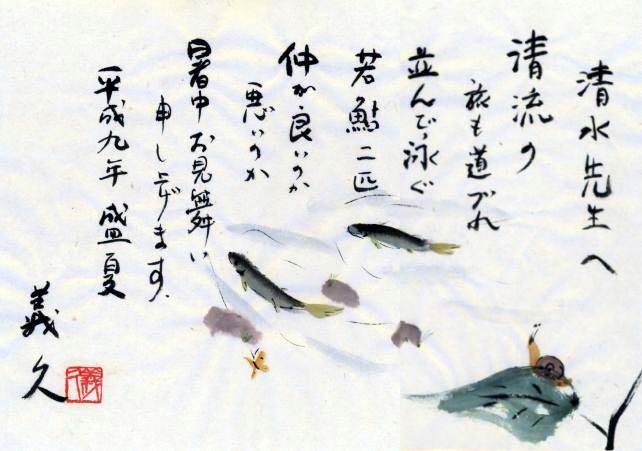 清水先生へ
清流の
旅も道づれ
並んで泳ぐ
若鮎二匹
仲が良いのか
悪いのか
暑中お見舞い
申し上げます.
平成九年 盛夏
義久